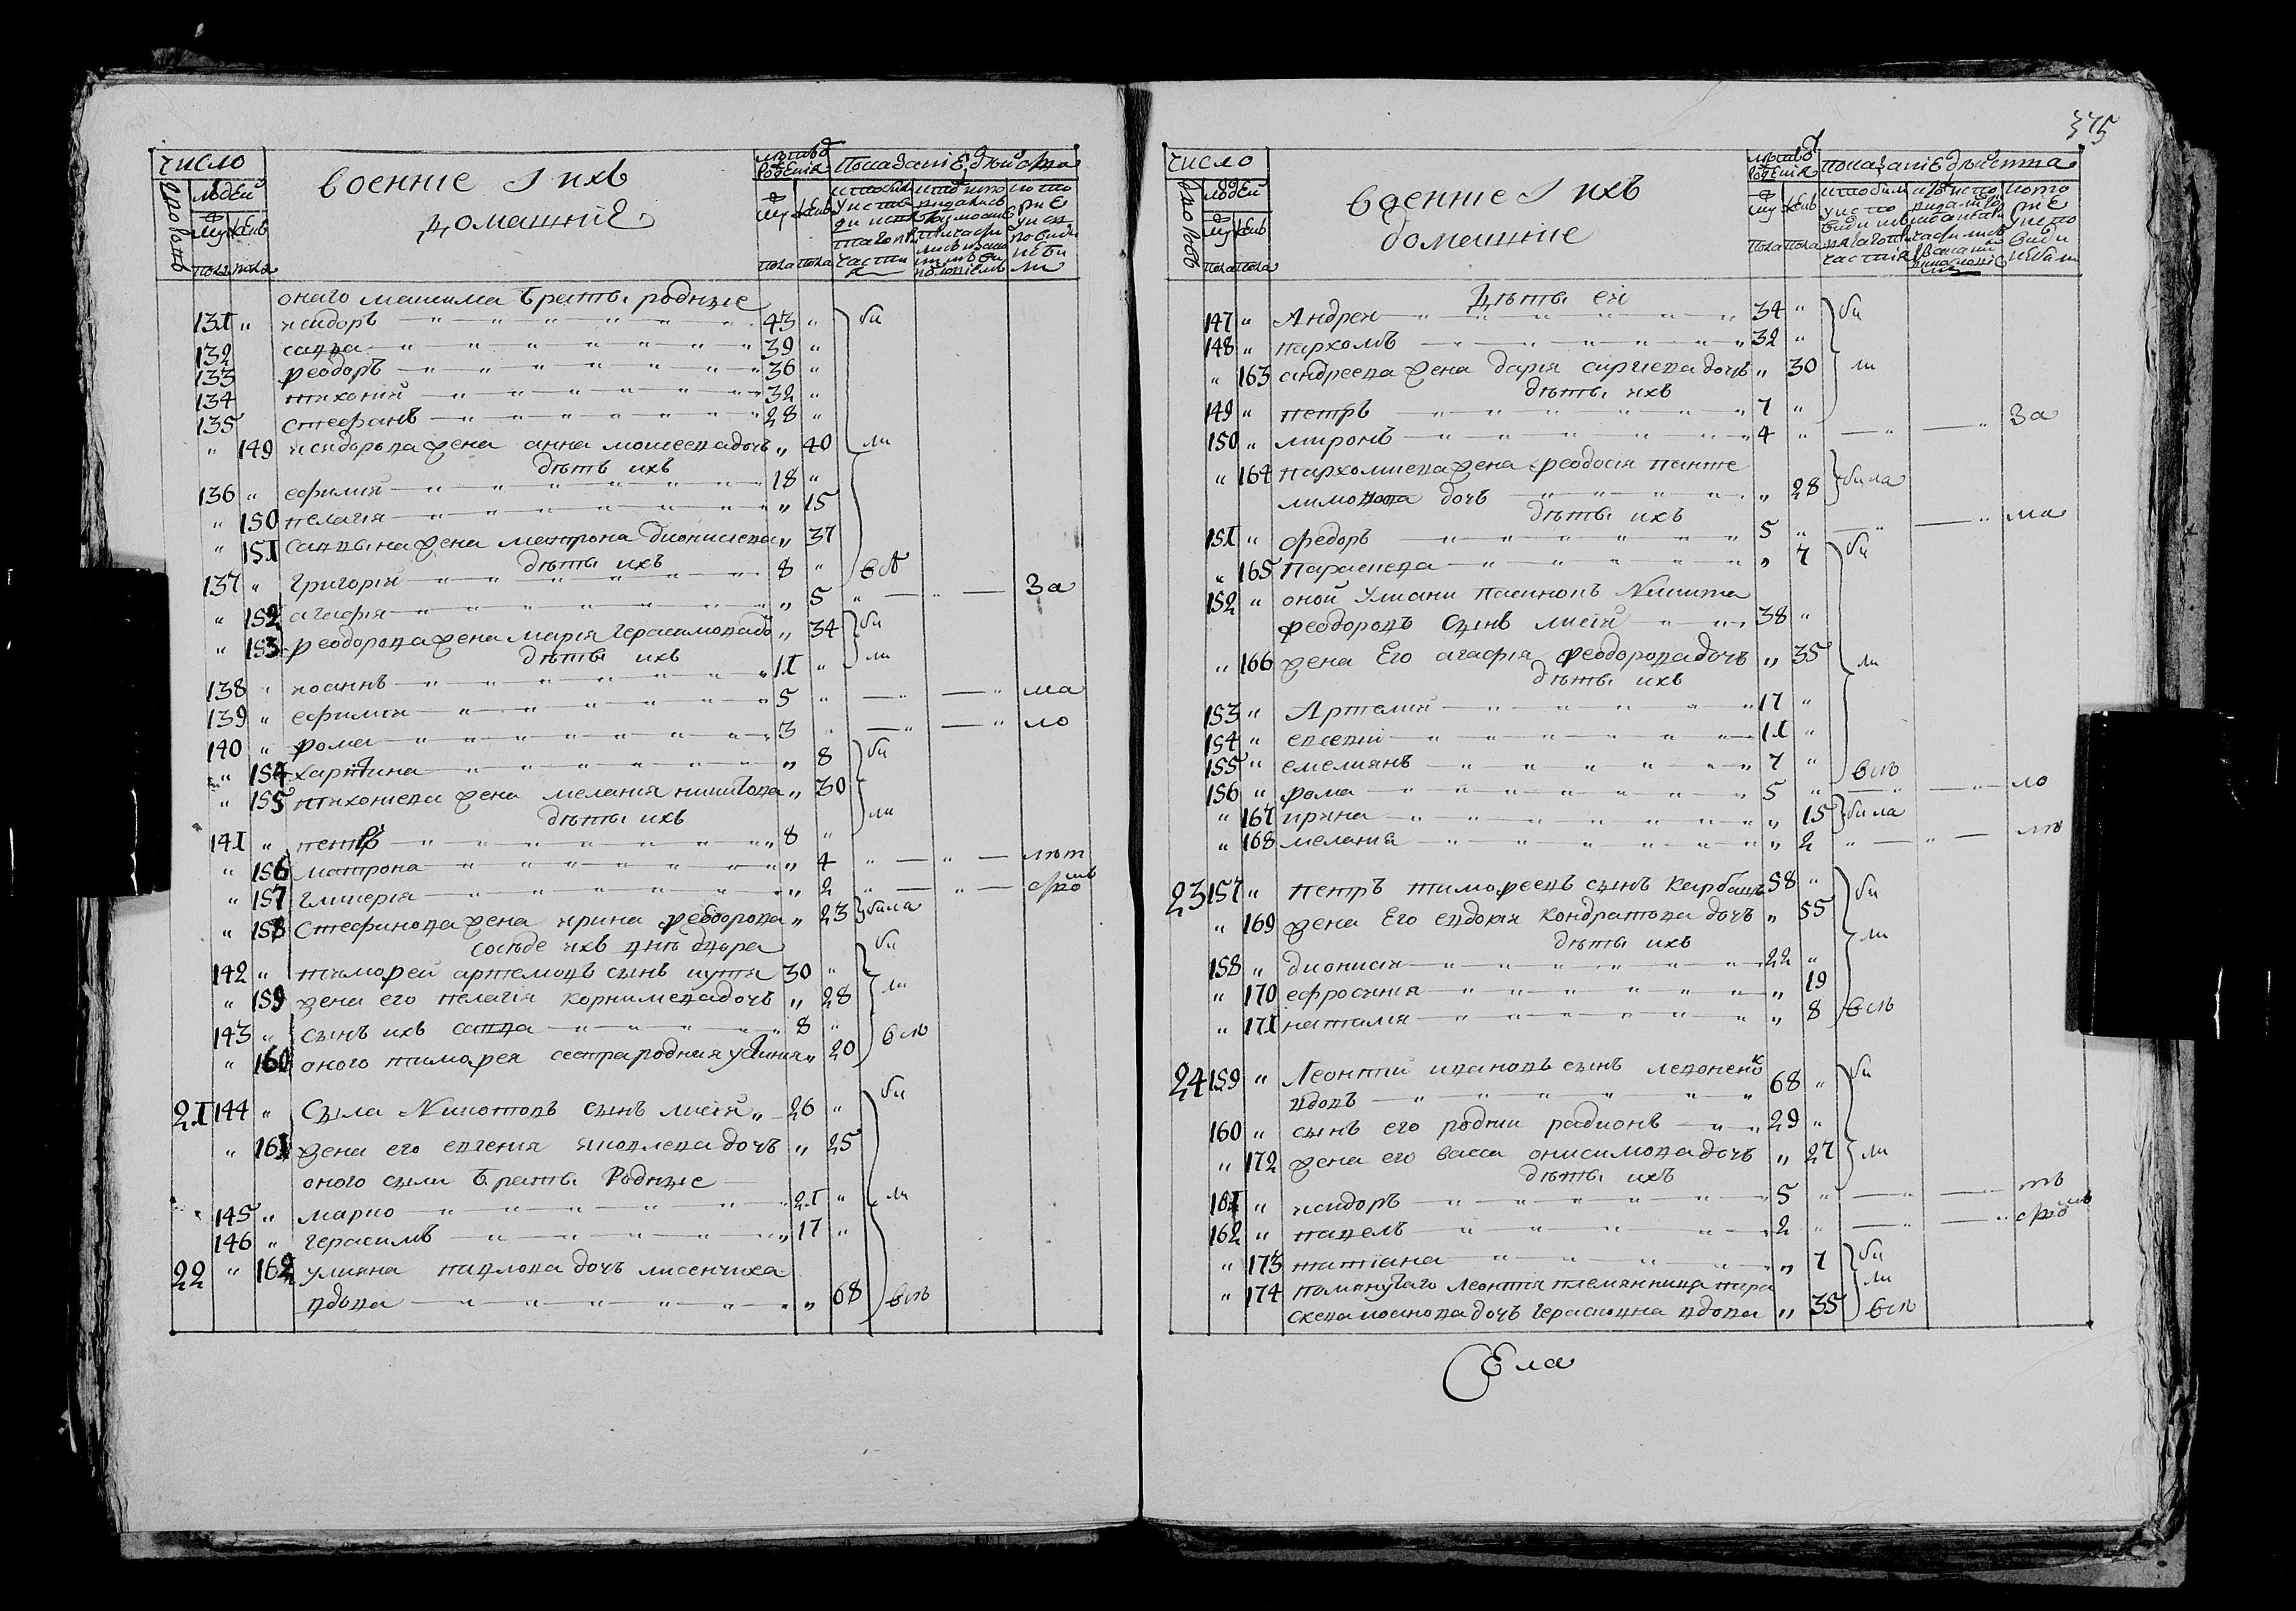 число
дворовъ
людей
му жен
пола пола
военние І ихъ
домашние
лѣта от рождения
му жен
пола пола
Показание действа
онаго максима братъи роднціе
131 " исидоръ 43 "
132 савва 39 "
133 феодоръ 36 "
134 тихоний 32 "
135 стефанъ 28 "
" 149 исидорова жена анна моисеевадочь " 40
дѣтѣ ихъ
136 " ефимий 18 "
" 150 пелагія " 15
" 151 саввина жена матрона дионисиева " 37
дѣтѣ ихъ
137 " григорій 8 "
" 152 агафія " 5 " За
" 153 феодорова жена марія герасимовадо " 34
дѣти ихъ
138 " иоаннъ 11 "
139 " ефимия 5 " ма
140 " фома 3 " ло
" 154 харитина " 8
" 155 тихониева жена мелания никитова " 30
дѣти ихъ
141 " петръ 8 "
" 156 матрона " 4 " лѣт
" 157 гликерія " 2 "
" 158 стефанова жена ирина феодорова " 23 била
соседе ихъ внѣ двора
142 " тимофей артемовъ сынъ кутя 30 "
" 159 жена его пелагія корнилевадочъ " 28
143 " сынъ ихъ савва 8 "
" 160 оного тимофея сестра родная устиния " 20
21 144 " Сила Никитовъ сынъ лисій " 26 "
" 161 жена его евгения яковлева дочъ " 25
оного сили братѣ Роднціе
145 " марко 21 "
146 " герасимъ " 17 "
22 " 162 улияна павлова дочъ лисенчиха
вдова " 68
375
число
дворовъ
людей
му жен
пола пола
военние І ихъ
домашние
лѣта от рождения
му жен
пола пола
показание действа
Дѣти ей
147 " Андрей 34 "
148 " пархомъ 32 "
" 163 андреева жена дарія сиргиева дочъ " 30
дѣти ихъ
149 " петръ 7 "
150 " миронъ 4 " За
" 164 пархомиева жена феодосія панте
лимонова дочъ " 28 била
дѣти ихъ
151 " федоръ 5 " ма
" 165 параскева " 7
152 " оной улиани пасинокъ Никита
феодоровъ сынъ лисій 38 "
" 166 жена Его агафія феодоровадочъ " 35
дѣти ихъ
153 " Артемий 17 "
154 " евсевий 11 "
155 " емелиянъ 7 "
156 " фома 5 " ло
" 167 ирина " 15 била
" 168 мелания " 2 "
23 157 " петръ тимофеевъ сынъ Карбанъ 58 "
" 169 жена Его евдокия кондратова дочъ " 55
дѣти ихъ
158 " дионисия 22 "
" 170 ефросиния " 19
" 171 наталия " 8
24 159 " Леонтий ивановъ сынъ левоненко 68 "
вдовъ
160 " сынъ его родний радионъ 29 "
" 172 жена его васса онисимовадочъ " 27
дѣти ихъ
161 " исидоръ 5 "
162 " павелъ 2 "
" 173 татіана " 7
" 174 помянутаго леонтія племянница пара
скева иоаннова дочъ герасковна вдова " 35
Села